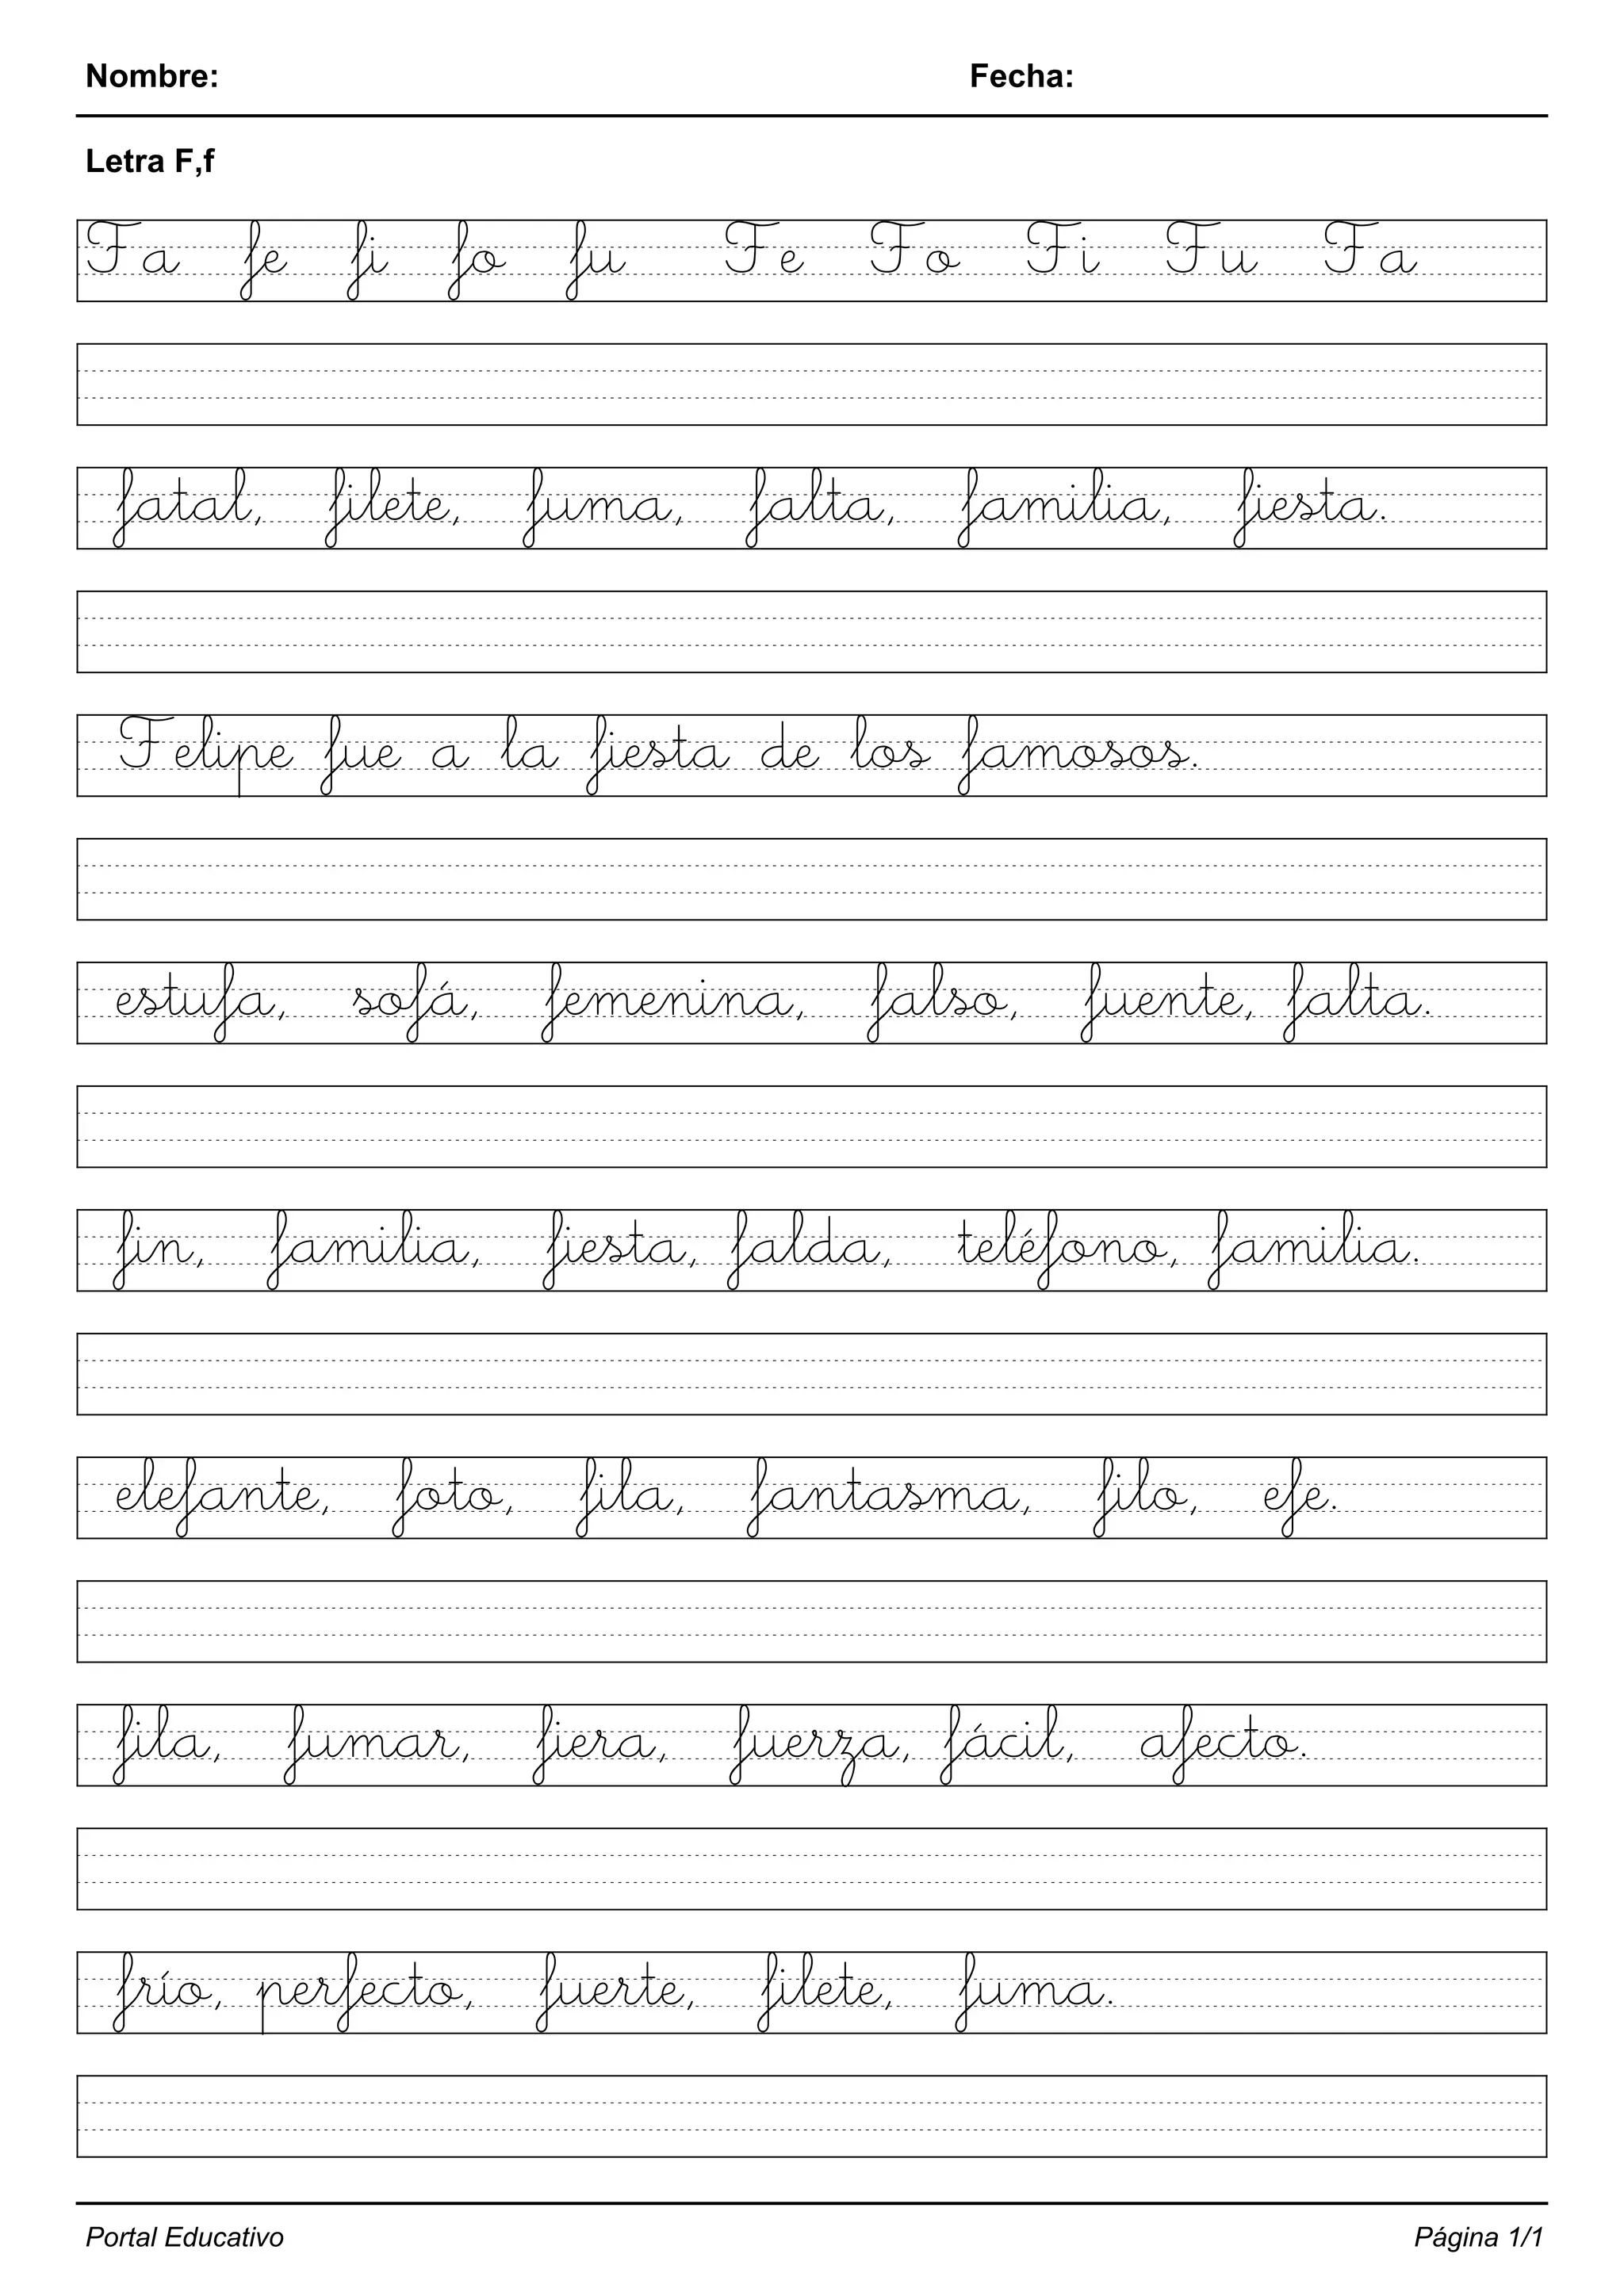 Nombre: Fecha:
Letra F,f
Fa fe fi fo fu Fe Fo Fi Fu Fa
fatal, filete, fuma, falta, familia, fiesta.
Felipe fue a la fiesta de los famosos.
estufa, sofá, femenina, falso, fuente, falta.
fin, familia, fiesta, falda, teléfono, familia.
elefante, foto, fila, fantasma, filo, efe.
fila, fumar, fiera, fuerza, fácil, afecto.
frío, perfecto, fuerte, filete, fuma.
Portal Educativo Página 1/1